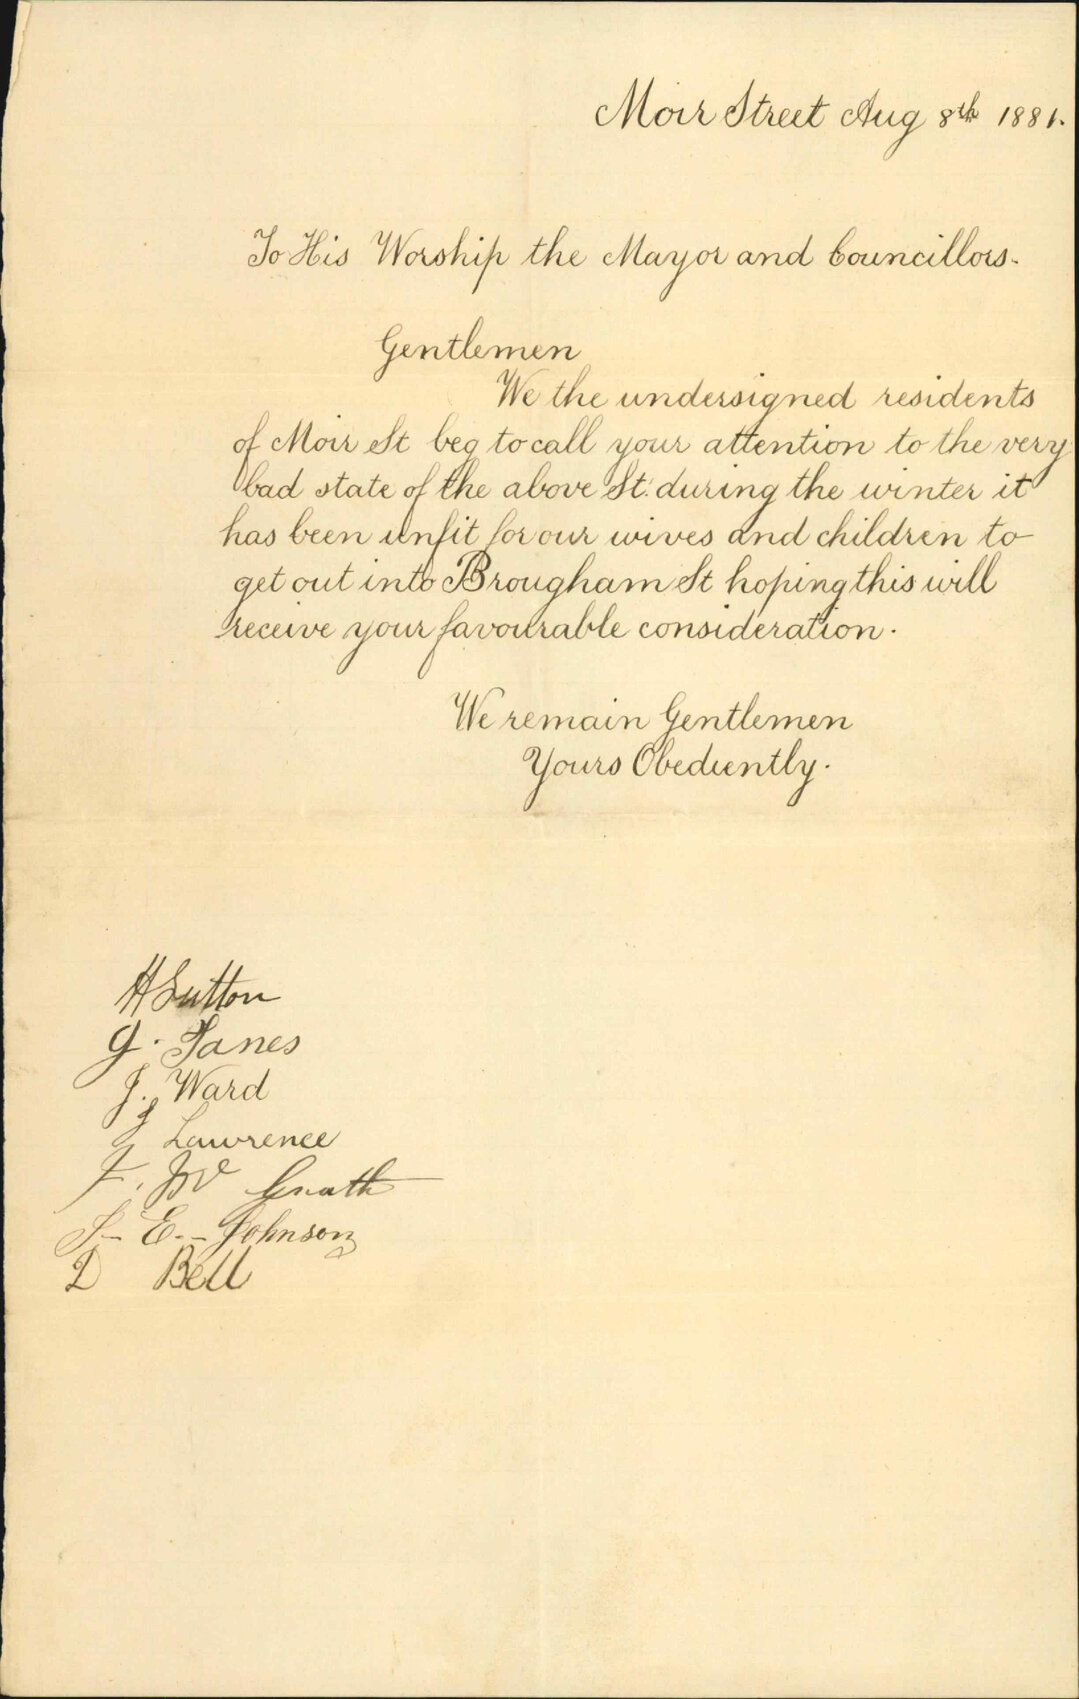 Moir Street Aug 8th 1881.
To His Worship the Mayor and Councillors.
Gentlemen
We the undersigned residents
of Moir St beg to call your attention to the very
bad state of the above St. during the winter it
has been unfit for our wives and children to
get out into Brougham St hoping this will
receive your favourable consideration.
We remain Gentlemen
Yours Obediently.
H Sutton
J. Janes
J. Ward
J Lawrence
F. W
E. Johnson
D Bell